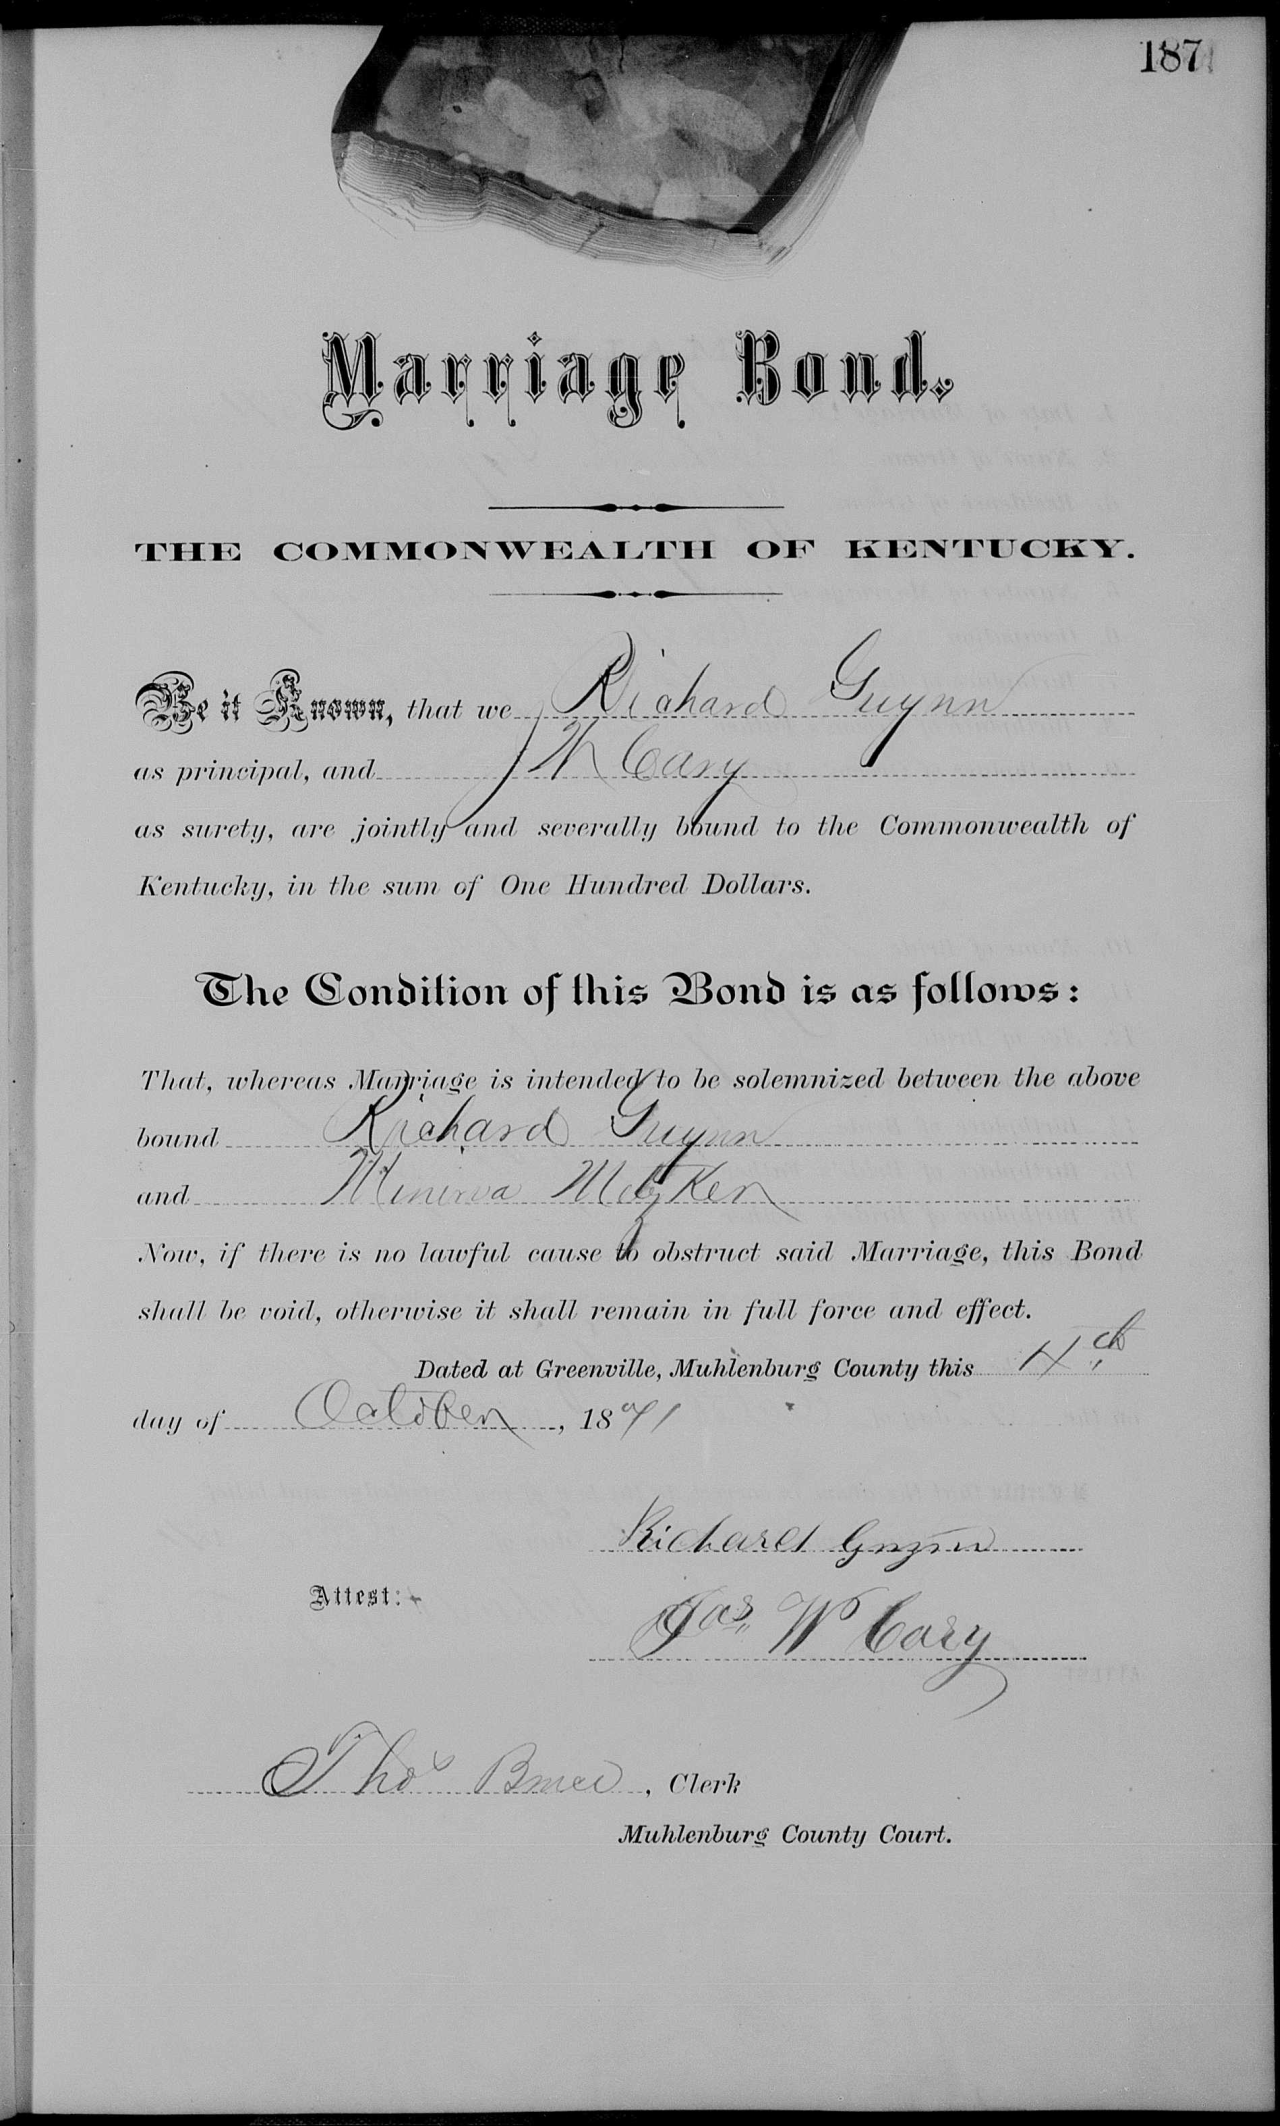 187
Marriage Bond.
THE COMMONWEALTH OF KENTUCKY.
Be it Known, that we Richard Guynn
as principal, and J W Cary
as surety, are jointly and severally bound to the Commonwealth of
Kentucky, in the sum of One Hundred Dollars.
The Condition of this Bond is as follows:
That, whereas Marriage is intended to be solemnized between the above
bound Richard Guynn
and Minerva
Now, if there is no lawful cause to obstruct said Marriage, this Bond
shall be void, otherwise it shall remain in full force and effect.
Dated at Greenville, Muhlenburg County this 4th
day of October, 1871
Richard
Attest:
Jas. W Cary
Thos Bruce, Clerk
Muhlenburg County Court.